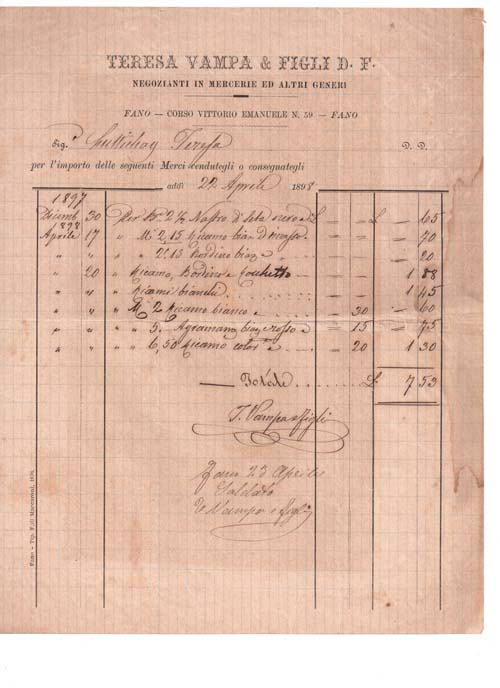 TERESA VAMPA & FIGLI D. F.
NEGOZIANTI IN MERCERIE ED ALTRI GENERI
FANO – CORSO VITTORIO EMANUELE N. 59 – FANO
Sig.ª Teresa D. D.
per l'importo delle seguenti Merci vendutegli o consegnategli
addì 22 Aprile 1898
1897
Dicemb 30 Per Nastro d' Seta nero a £ – – £ – 65
898
Aprile 17 " M 2,15 Ricamo bian – – – 70
" " " " 2,15 Bordino bian – – – 20
" 20 " Ricamo, Bordino e – – 1 88
" " " Ricami bianchi – – 1 45
" " " M 2 Ricamo bianco a – 30 – 60
" " " " 5. Agramano rosso a – 15 – 75
" " " " 6,50 Ricamo color a – 20 1 30
— Totale £ 7 53
T. Vampa e figli
Fano 23 Aprile
Saldato
Vampa e figli
Fano – Tip. F.lli Mascioni, 1896.